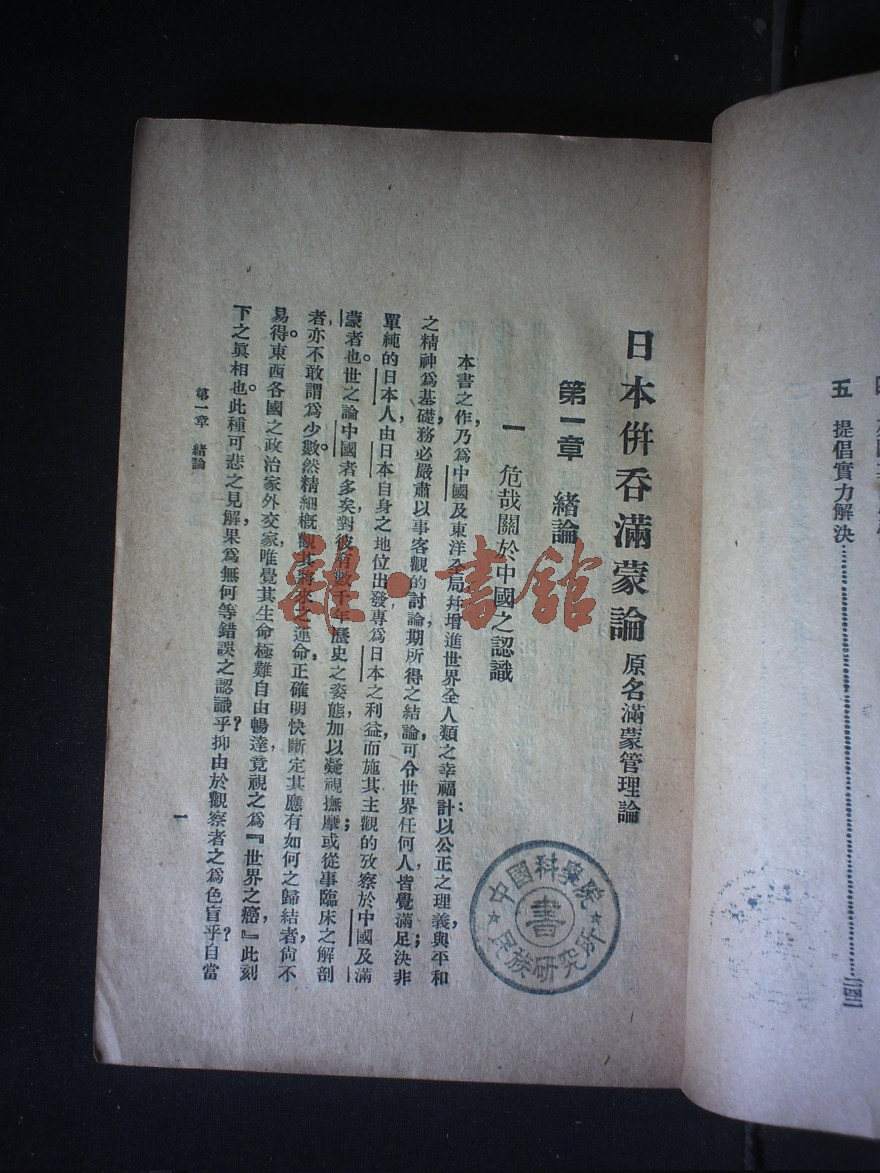 日本併吞滿蒙論 原名滿蒙管理論
第一章　緒論
一　危哉關於中國之認識
本書之作，乃爲中國及東洋全局幷增進世界全人類之幸福計：以公正之理義與平和
之精神爲基礎，務必嚴肅以事客觀的討論，期所得之結論，可令世界任何人皆覺滿足；決非
單純的日本人，由日本自身之地位出發，專爲日本之利益，而施其主觀的攷察於中國及滿
蒙者也。世之論中國者多矣，對彼有數千年歷史之姿態，加以凝視撫摩，或從事臨床之解剖
者，亦不敢謂爲少數。然精細槪觀其將來之運命，正確明快斷定其應有如何之歸結者，尙不
易得。東西各國之政治家外交家，唯覺其生命極難自由暢達，竟視之爲『世界之癌』，此刻
下之眞相也。此種可悲之見解，果爲無何等錯誤之認識乎？抑由於觀察者之爲色盲乎？自當
第一章　緒論
一
中國科學院
民族研究所
書
雜·書館
五　提倡實力解決……二四二